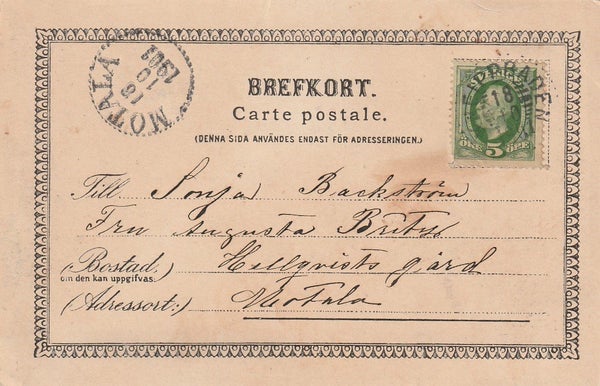 MOTALA
18
10
1901
BREFKORT.
Carte postale.
(DENNA SIDA ANVÄNDES ENDAST FÖR ADRESSERINGEN.)
18
ÖRE 5 ÖRE
Till Sonja Backström
Fru Augusta
(Bostad, Hellqvists gård
om den kan uppgifvas.)
(Adressort:) Motala